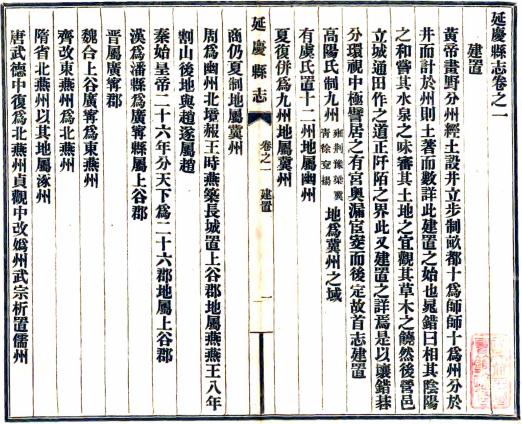 延慶縣志卷之一
建置
黃帝畫野分州經土設井立步制畝都十為師師十為州分於
井而計於州則土著而數詳此建置之始也晁錯曰相其陰陽
之和嘗其水泉之味審其土地之宜觀其草木之饒然後營邑
立城通田作之道正阡陌之界此又建置之詳焉是以壤錯碁
分環視中極譬居之有宮奧漏宧窔而後定故首志建置
高陽氏制九州 雍荆豫梁冀青徐兗揚 地為冀州之域
有虞氏置十二州地屬幽州
夏復併為九州地屬冀州
延慶縣志
卷之一 建置
一
商仍夏制地屬冀州
周為幽州北境赧王時燕築長城置上谷郡地屬燕燕王八年
割山後地與趙遂屬趙
秦始皇帝二十六年分天下為三十六郡地屬上谷郡
漢為潘縣為廣寗縣屬上谷郡
晉屬廣寗郡
魏合上谷廣寗為東燕州
齊改東燕州為北燕州
隋省北燕州以其地屬涿州
唐武德中復為北燕州貞觀中改媯州武宗析置儒州